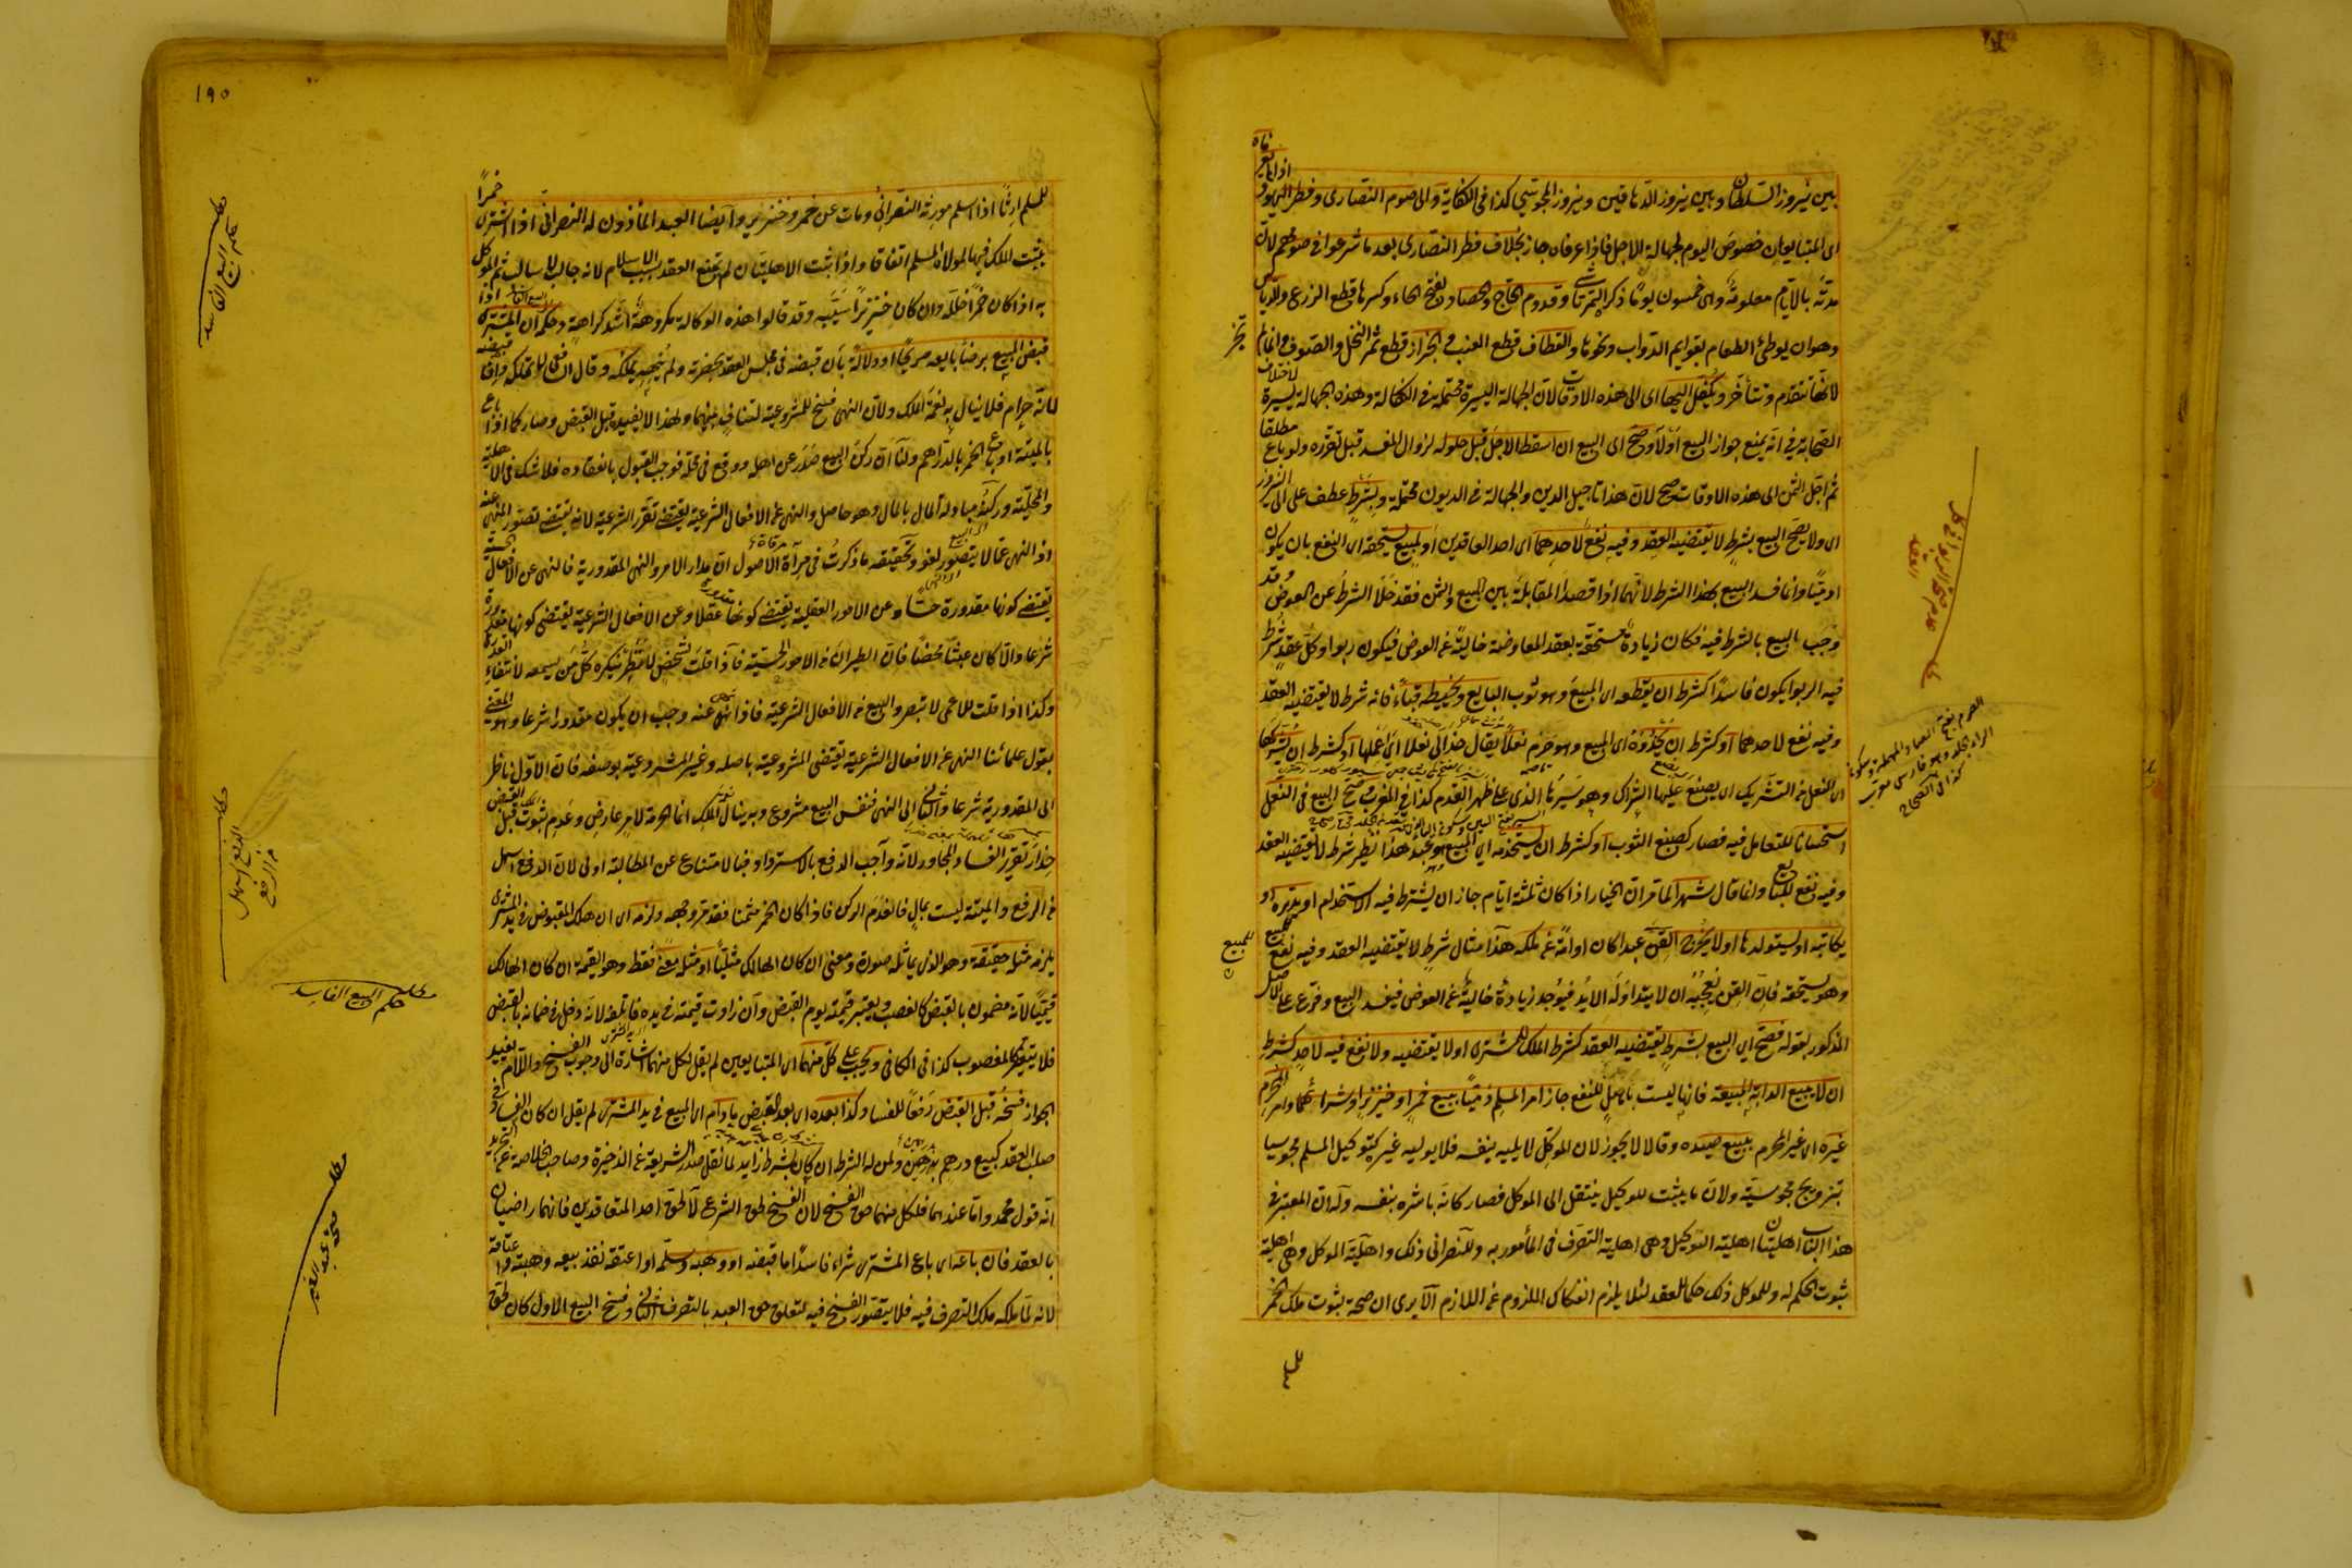 بين نيروز السلطان وبين نيروز الدهاقين ونيروز المجوسي كذا في الكفاية والى صوم النصارى وفطر اليهود
اذا لم يعرفاه
اى المتبايعان خصوص اليوم لجهالة الاجل فاذا عرفاه جاز بخلاف فطر النصارى بعد ما شرعوا في صومهم لان
مدته بالايام معلومة وهى خمسون يوما ذكره التمرتاشي وقدوم الحاج والحصاد بفتح الحاء وكسرها قطع الزرع والدياس
وهو ان يوطئ الطعام بقوايم الدواب ونحوها والقطاف قطع العنب والجزاز قطع ثمر النخل والصوف وانما لم
يجز
لانها تتقدم وتتأخر ويكفل اليها اى الى هذه الاوقات لان الجهالة اليسيرة محتملة في الكفالة وهذه الجهالة يسيرة لاختلاف
الصحابة في انه يمنع جواز البيع اولا وصح اى البيع ان اسقط الاجل قبل حلوله لزوال المفسد قبل تقرره ولو باع مطلقا
ثم اجل الثمن الى هذه الاوقات صح لان هذا تاجيل الدين والجهالة في الديون محتملة وبشرط عطف على الى النيروز
اى ولا يصح البيع بشرط لا يقتضيه العقد وفيه نفع لاحدهما اى احد العاقدين او لمبيع يستحقه اى النفع بان يكون
ادميا وانما فسد البيع بهذا الشرط لانهما اذا قصدا المقابلة بين المبيع والثمن فقد خلا الشرط عن العوض وقد
وجب بالبيع بالشرط فيه فكان زيادة مستحقة بعقد المعاوضة خالية عن العوض فيكون ربوا وكل عقد شرط
فيه الربوا يكون فاسدا كشرط ان يقطعه اى المبيع وهو ثوب البايع ويخيطه قباء فانه شرط لا يقتضيه العقد
وفيه نفع لاحدهما او كشرط ان يحذوه اى المبيع وهو صرم نعلا يقال حذا لى نعلا اى عملها او كشرط ان يشركها
اى النعل من التشريك اى يصنع عليها الشراك وهو سيرها الذي على ظهر القدم كذا في المغرب وصح البيع في النعل
استحسانا للتعامل فيه فصار كصبغ الثوب او كشرط ان يستخدمه اى المبيع وهو عبد هذا نظير شرط لا يقتضيه العقد
وفيه نفع للبايع وانما قال شهرا لما مر ان الخيار اذا كان ثلثة ايام جاز ان يشترط فيه الاستخدام او يدبره او
يكاتبه او يستولدها او لا يخرج القن عبدا كان او امة عن ملكه هذا مثال شرط لا يقتضيه العقد وفيه نفع للمبيع
وهو يستحقه فان القن يعجبه ان لا يتداوله الايدي فيوجد زيادة خالية عن العوض فيفسد البيع وفرع على الاصل
المذكور بقوله فصح اى البيع بشرط يقتضيه العقد كشرط الملك للمشترى او لا يقتضيه ولا نفع فيه لاحد كشرط
ان لا يبيع الدابة المبيعة فانها ليست باهل للنفع جاز امر المسلم ذميا ببيع خمر او خنزير او شرائهما وامر المحرم
غيره اى غير المحرم ببيع صيده وقالا لا يجوز لان الموكل لا يليه بنفسه فلا يوليه غيره كتوكيل المسلم مجوسيا
بتزويج مجوسية ولان ما يثبت للوكيل ينتقل الى الموكل فصار كانه باشره بنفسه وله ان المعتبر في
هذا الباب اهليتان اهلية التوكيل وهى اهلية التصرف في المأمور به وللنصراني ذلك واهلية الموكل وهى اهلية
ثبوت الحكم له وللموكل ذلك حكما للعقد لئلا يلزم انفكاك الملزوم عن اللازم الا يرى ان صحة ثبوت ملك الخمر
عدم صحة البيع
الصرم بفتح الصاد المهملة وسكون
الراء الجلد وهو فارسى معرب
كذا في الصحاح
١٩٥
للمسلم ارثا اذا اسلم مورثه النصراني ومات عن خمر وخنزير وايضا العبد المأذون له النصراني اذا اشترى خمرا
يثبت الملك فيها لمولاه المسلم اتفاقا واذا ثبتت الاهليتان لم يمتنع العقد بسبب الاسلام لانه جالب لا سالب ثم الموكل
به اذا كان خمرا خلله وان كان خنزيرا سيبه وقد قالوا هذه الوكالة مكروهة اشد كراهة وحكمه ان المشترى اذا
قبض المبيع برضا بايعه صريحا او دلالة بان قبضه في مجلس العقد بحضرته ولم ينهه يملكه وقال الشافعى لا يملكه وان قبضه
لانه حرام فلا ينال به نعمة الملك ولان النهى نسخ للمشروعية لتناف بينهما ولهذا لا يفيده قبل القبض وصار كما اذا باع
بالميتة او باع الخمر بالدراهم ولنا ان ركن البيع صدر عن اهله ووقع في محله فوجب القبول بانعقاده فلا شك في الاهلية
والمحلية وركنه مبادلة المال بالمال وهو حاصل والنهى عن الافعال الشرعية يقتضى تقرر الشرعية لانه يقتضى تصور المنهى عنه
اذ النهى عما لا يتصور لغو وتحقيقه ما ذكرت في مرآة الاصول ان مدار الامر والنهى المقدورية فالنهى عن الافعال الحسية
يقتضى كونها مقدورة حسا وعن الامور العقلية يقتضى كونها عقلا وعن الافعال الشرعية يقتضى كونها مقدورة
شرعا والا كان عبثا محضا فان الطيران من الامور الحسية فاذا قلت لشخص لا تطر ينكره كل من يسمعه لانتفاء القدرة
وكذا اذا قلت للاعمى لا تبصر والبيع من الافعال الشرعية فاذا نهى عنه وجب ان يكون مقدورا شرعا وهو المعنى
بقول علمائنا النهى عن الافعال الشرعية يقتضى المشروعية باصله وغير المشروعية بوصفه فان الاول ناظر
الى المقدورية شرعا والثاني الى النهى فنفس البيع مشروع وبه ينال الملك انما الحرمة لامر عارض وعدم ثبوت قبل القبض
حذار تقرر الفساد المجاور لانه واجب الدفع بالاسترداد فبالامتناع عن المطالبة اولى لان الدفع اسهل
من الرفع والميتة ليست بمال فانعدم الركن فاذا كان الخمر مثمنا فقد مر وجهه ولزمه اى ان هلك المقبوض في يد المشترى
يلزمه مثله حقيقة وهو الذى يماثله صورة ومعنى ان كان الهالك مثليا او مثله معنى فقط وهو القيمة ان كان الهالك
قيميا لانه مضمون بالقبض كالغصب ويعتبر قيمته يوم القبض وان زادت قيمته في يده فاتلفه لانه دخل في ضمانه بالقبض
فلا يتغير كالمغصوب كذا في الكافي ويجب على كل منهما اى المتبايعين لم يقل لكل منهما اشارة الى وجوب الفسخ واللام يفيد
الجواز فسخه قبل القبض رفعا للفساد وكذا بعده اى بعد القبض ما دام اى المبيع في يد المشترى لم يقل ان كان الفساد في
صلب العقد كبيع درهم بدرهمين ولمن له الشرط ان كان بشرط زايد لما نقل صدر الشريعة عن الذخيرة وصاحب الخلاصة عن التجريد
انه قول محمد واما عندهما فلكل منهما حق الفسخ لان الفسخ لحق الشرع لا لحق احد المتعاقدين فانهما راضيان
بالعقد فان باعه اى باع المشترى شراء فاسدا ما قبضه او وهبه وسلمه او اعتقه نفذ بيعه وهبته واعتاقه
لانه لما ملكه ملك التصرف فيه فلا يتصور الفسخ فيه لتعلق حق العبد بالتصرف الثاني وفسخ البيع الاول كان لحق
مطلب
حكم البيع الفاسد
مطلب
الدفع اسهل
من الرفع
مطلب
حكم البيع الفاسد
مطلب